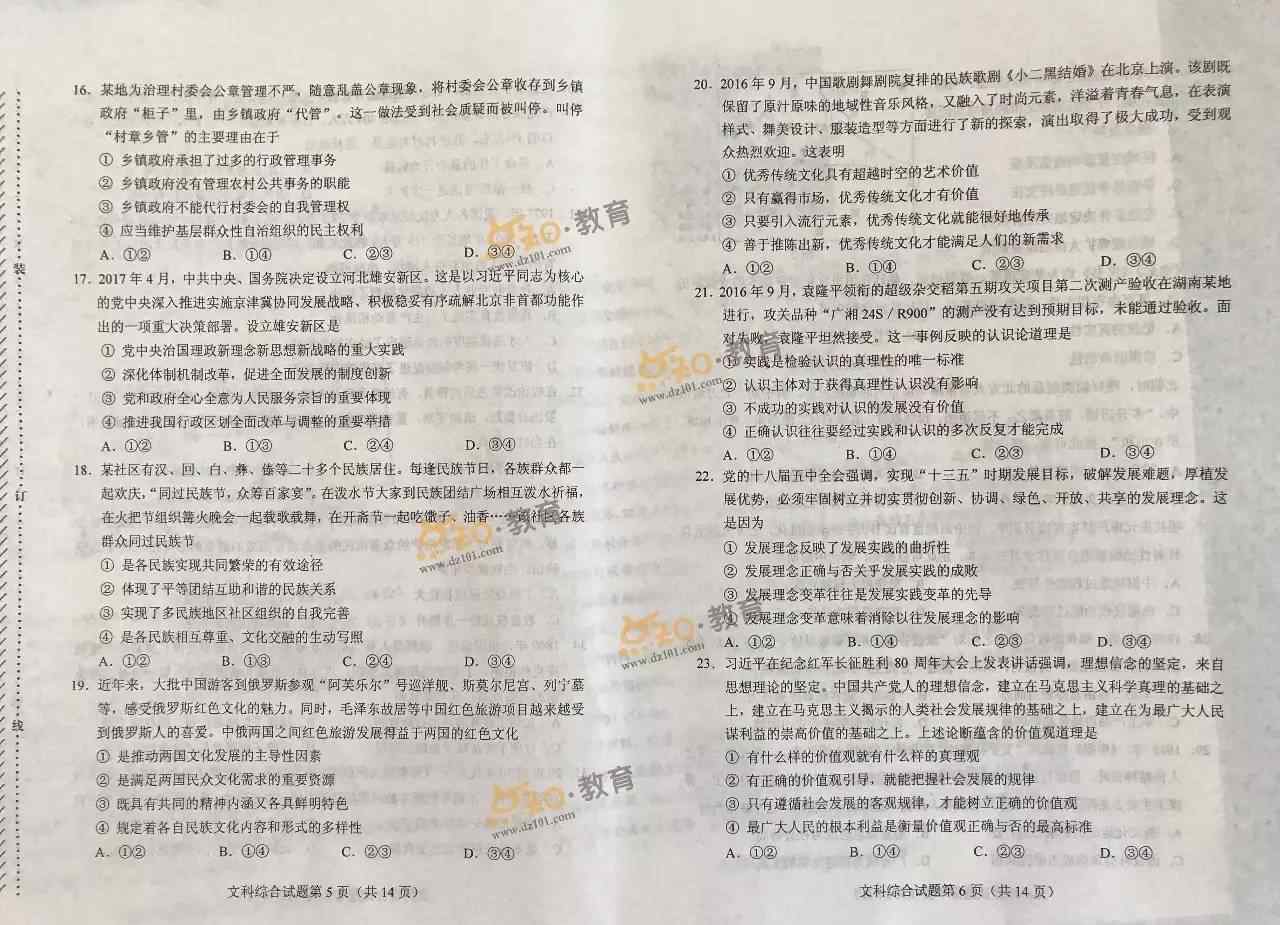 16. 某地为治理村委会公章管理不严。随意乱盖公章现象,将村委会公章收存到乡镇
政府“柜子”里,由乡镇政府“代管”。这一做法受到社会质疑而被叫停。叫停
“村章乡管”的主要理由在于
① 乡镇政府承担了过多的行政管理事务
② 乡镇政府没有管理农村公共事务的职能
③ 乡镇政府不能代行村委会的自我管理权
④ 应当维护基层群众性自治组织的民主权利
A. ①② B. ①④ C. ②③ D. ③④
17. 2017 年 4 月,中共中央、国务院决定设立河北雄安新区。这是以习近平同志为核心
的党中央深入推进实施京津冀协同发展战略、积极稳妥有序疏解北京非首都功能作
出的一项重大决策部署。设立雄安新区是
① 党中央治国理政新理念新思想新战略的重大实践
② 深化体制机制改革,促进全面发展的制度创新
③ 党和政府全心全意为人民服务宗旨的重要体现
④ 推进我国行政区划全面改革与调整的重要举措
A. ①② B. ①③ C. ②④ D. ③④
18. 某社区有汉、回、白、彝、傣等二十多个民族居住。每逢民族节日,各族群众都一
起欢庆,“同过民族节,众筹百家宴”。在泼水节大家到民族团结广场相互泼水祈福,
在火把节组织篝火晚会一起载歌载舞,在开斋节一起吃馓子、油香……该社区各族
群众同过民族节
① 是各民族实现共同繁荣的有效途径
② 体现了平等团结互助和谐的民族关系
③ 实现了多民族地区社区组织的自我完善
④ 是各民族相互尊重、文化交融的生动写照
A. ①② B. ①③ C. ②④ D. ③④
19. 近年来,大批中国游客到俄罗斯参观“阿芙乐尔”号巡洋舰、斯莫尔尼宫、列宁墓
等,感受俄罗斯红色文化的魅力。同时,毛泽东故居等中国红色旅游项目越来越受
到俄罗斯人的喜爱。中俄两国之间红色旅游发展得益于两国的红色文化
① 是推动两国文化发展的主导性因素
② 是满足两国民众文化需求的重要资源
③ 既具有共同的精神内涵又各具鲜明特色
④ 规定着各自民族文化内容和形式的多样性
A. ①② B. ①④ C. ②③ D. ③④
文科综合试题第 5 页(共 14 页)
20. 2016 年 9 月,中国歌剧舞剧院复排的民族歌剧《小二黑结婚》在北京上演。该剧既
保留了原汁原味的地域性音乐风格,又融入了时尚元素,洋溢着青春气息,在表演
样式、舞美设计、服装造型等方面进行了新的探索,演出取得了极大成功,受到观
众热烈欢迎。这表明
① 优秀传统文化具有超越时空的艺术价值
② 只有赢得市场,优秀传统文化才有价值
③ 只要引入流行元素,优秀传统文化就能很好地传承
④ 善于推陈出新,优秀传统文化才能满足人们的新需求
A. ①② B. ①④ C. ②③ D. ③④
21. 2016 年 9 月,袁隆平领衔的超级杂交稻第五期攻关项目第二次测产验收在湖南某地
进行,攻关品种“广湘 24S / R900”的测产没有达到预期目标,未能通过验收。面
对失败,袁隆平坦然接受。这一事例反映的认识论道理是
① 实践是检验认识的真理性的唯一标准
② 认识主体对于获得真理性认识没有影响
③ 不成功的实践对认识的发展没有价值
④ 正确认识往往要经过实践和认识的多次反复才能完成
A. ①② B. ①④ C. ②③ D. ③④
22. 党的十八届五中全会强调,实现“十三五”时期发展目标,破解发展难题,厚植发
展优势,必须牢固树立并切实贯彻创新、协调、绿色、开放、共享的发展理念。这
是因为
① 发展理念反映了发展实践的曲折性
② 发展理念正确与否关乎发展实践的成败
③ 发展理念变革往往是发展实践变革的先导
④ 发展理念变革意味着消除以往发展理念的影响
A. ①② B. ①④ C. ②③ D. ③④
23. 习近平在纪念红军长征胜利 80 周年大会上发表讲话强调,理想信念的坚定,来自
思想理论的坚定。中国共产党人的理想信念,建立在马克思主义科学真理的基础之
上,建立在马克思主义揭示的人类社会发展规律的基础之上,建立在为最广大人民
谋利益的崇高价值的基础之上。上述论断蕴含的价值观道理是
① 有什么样的价值观就有什么样的真理观
② 有正确的价值观引导,就能把握社会发展的规律
③ 只有遵循社会发展的客观规律,才能树立正确的价值观
④ 最广大人民的根本利益是衡量价值观正确与否的最高标准
A. ①② B. ①④ C. ②③ D. ③④
文科综合试题第 6 页(共 14 页)
装
订
线
点知·教育
www.dz101.com
点知·教育
www.dz101.com
点知·教育
www.dz101.com
点知·教育
www.dz101.com
点知·教育
www.dz101.com